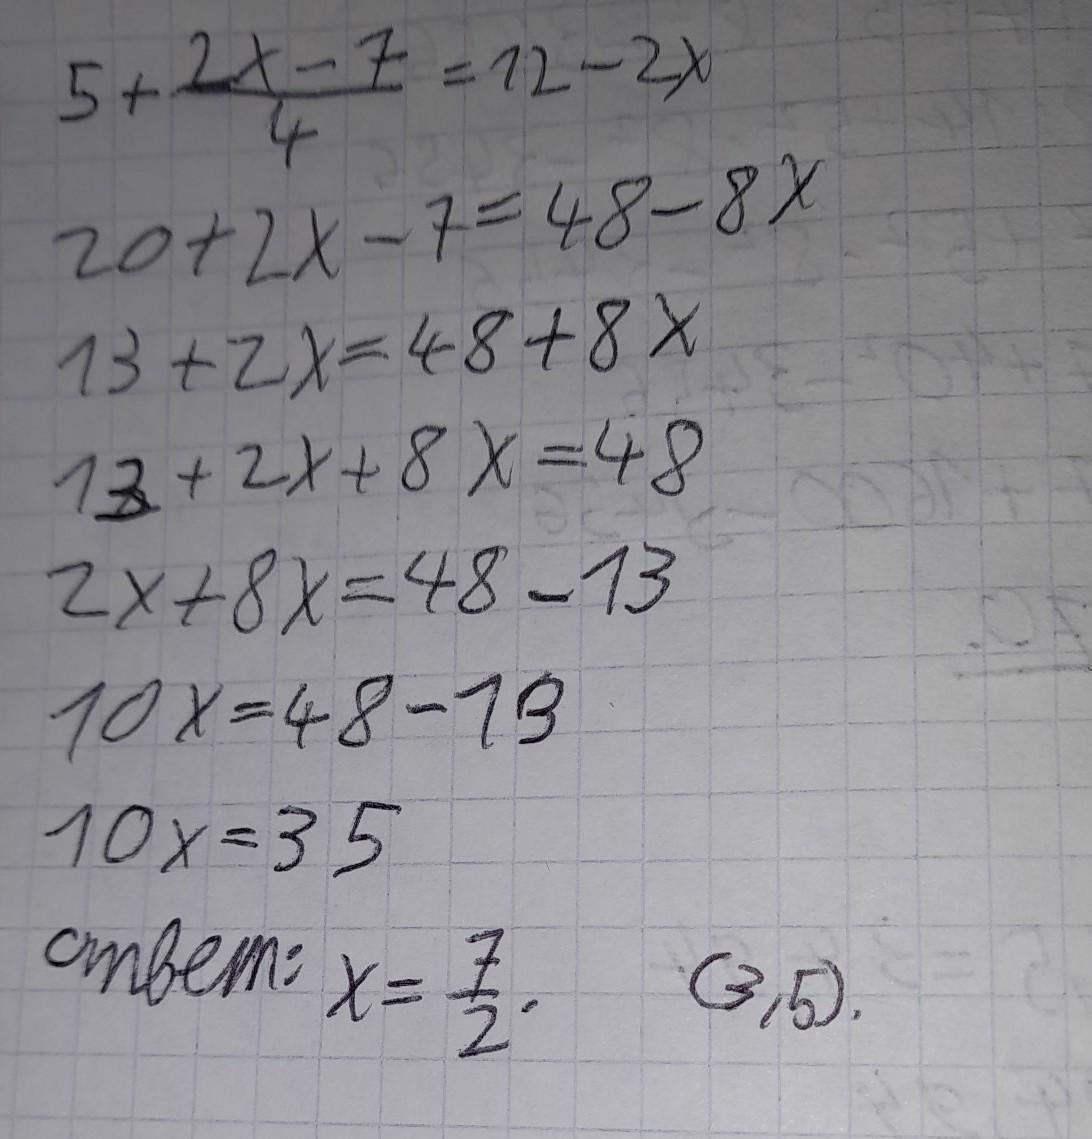 5 + (2x - 7)/4 = 12 - 2x
20 + 2x - 7 = 48 - 8x
13 + 2x = 48 + 8x
13 + 2x + 8x = 48
2x + 8x = 48 - 13
10x = 48 - 13
10x = 35
ответ: x = 7/2. (3,5).